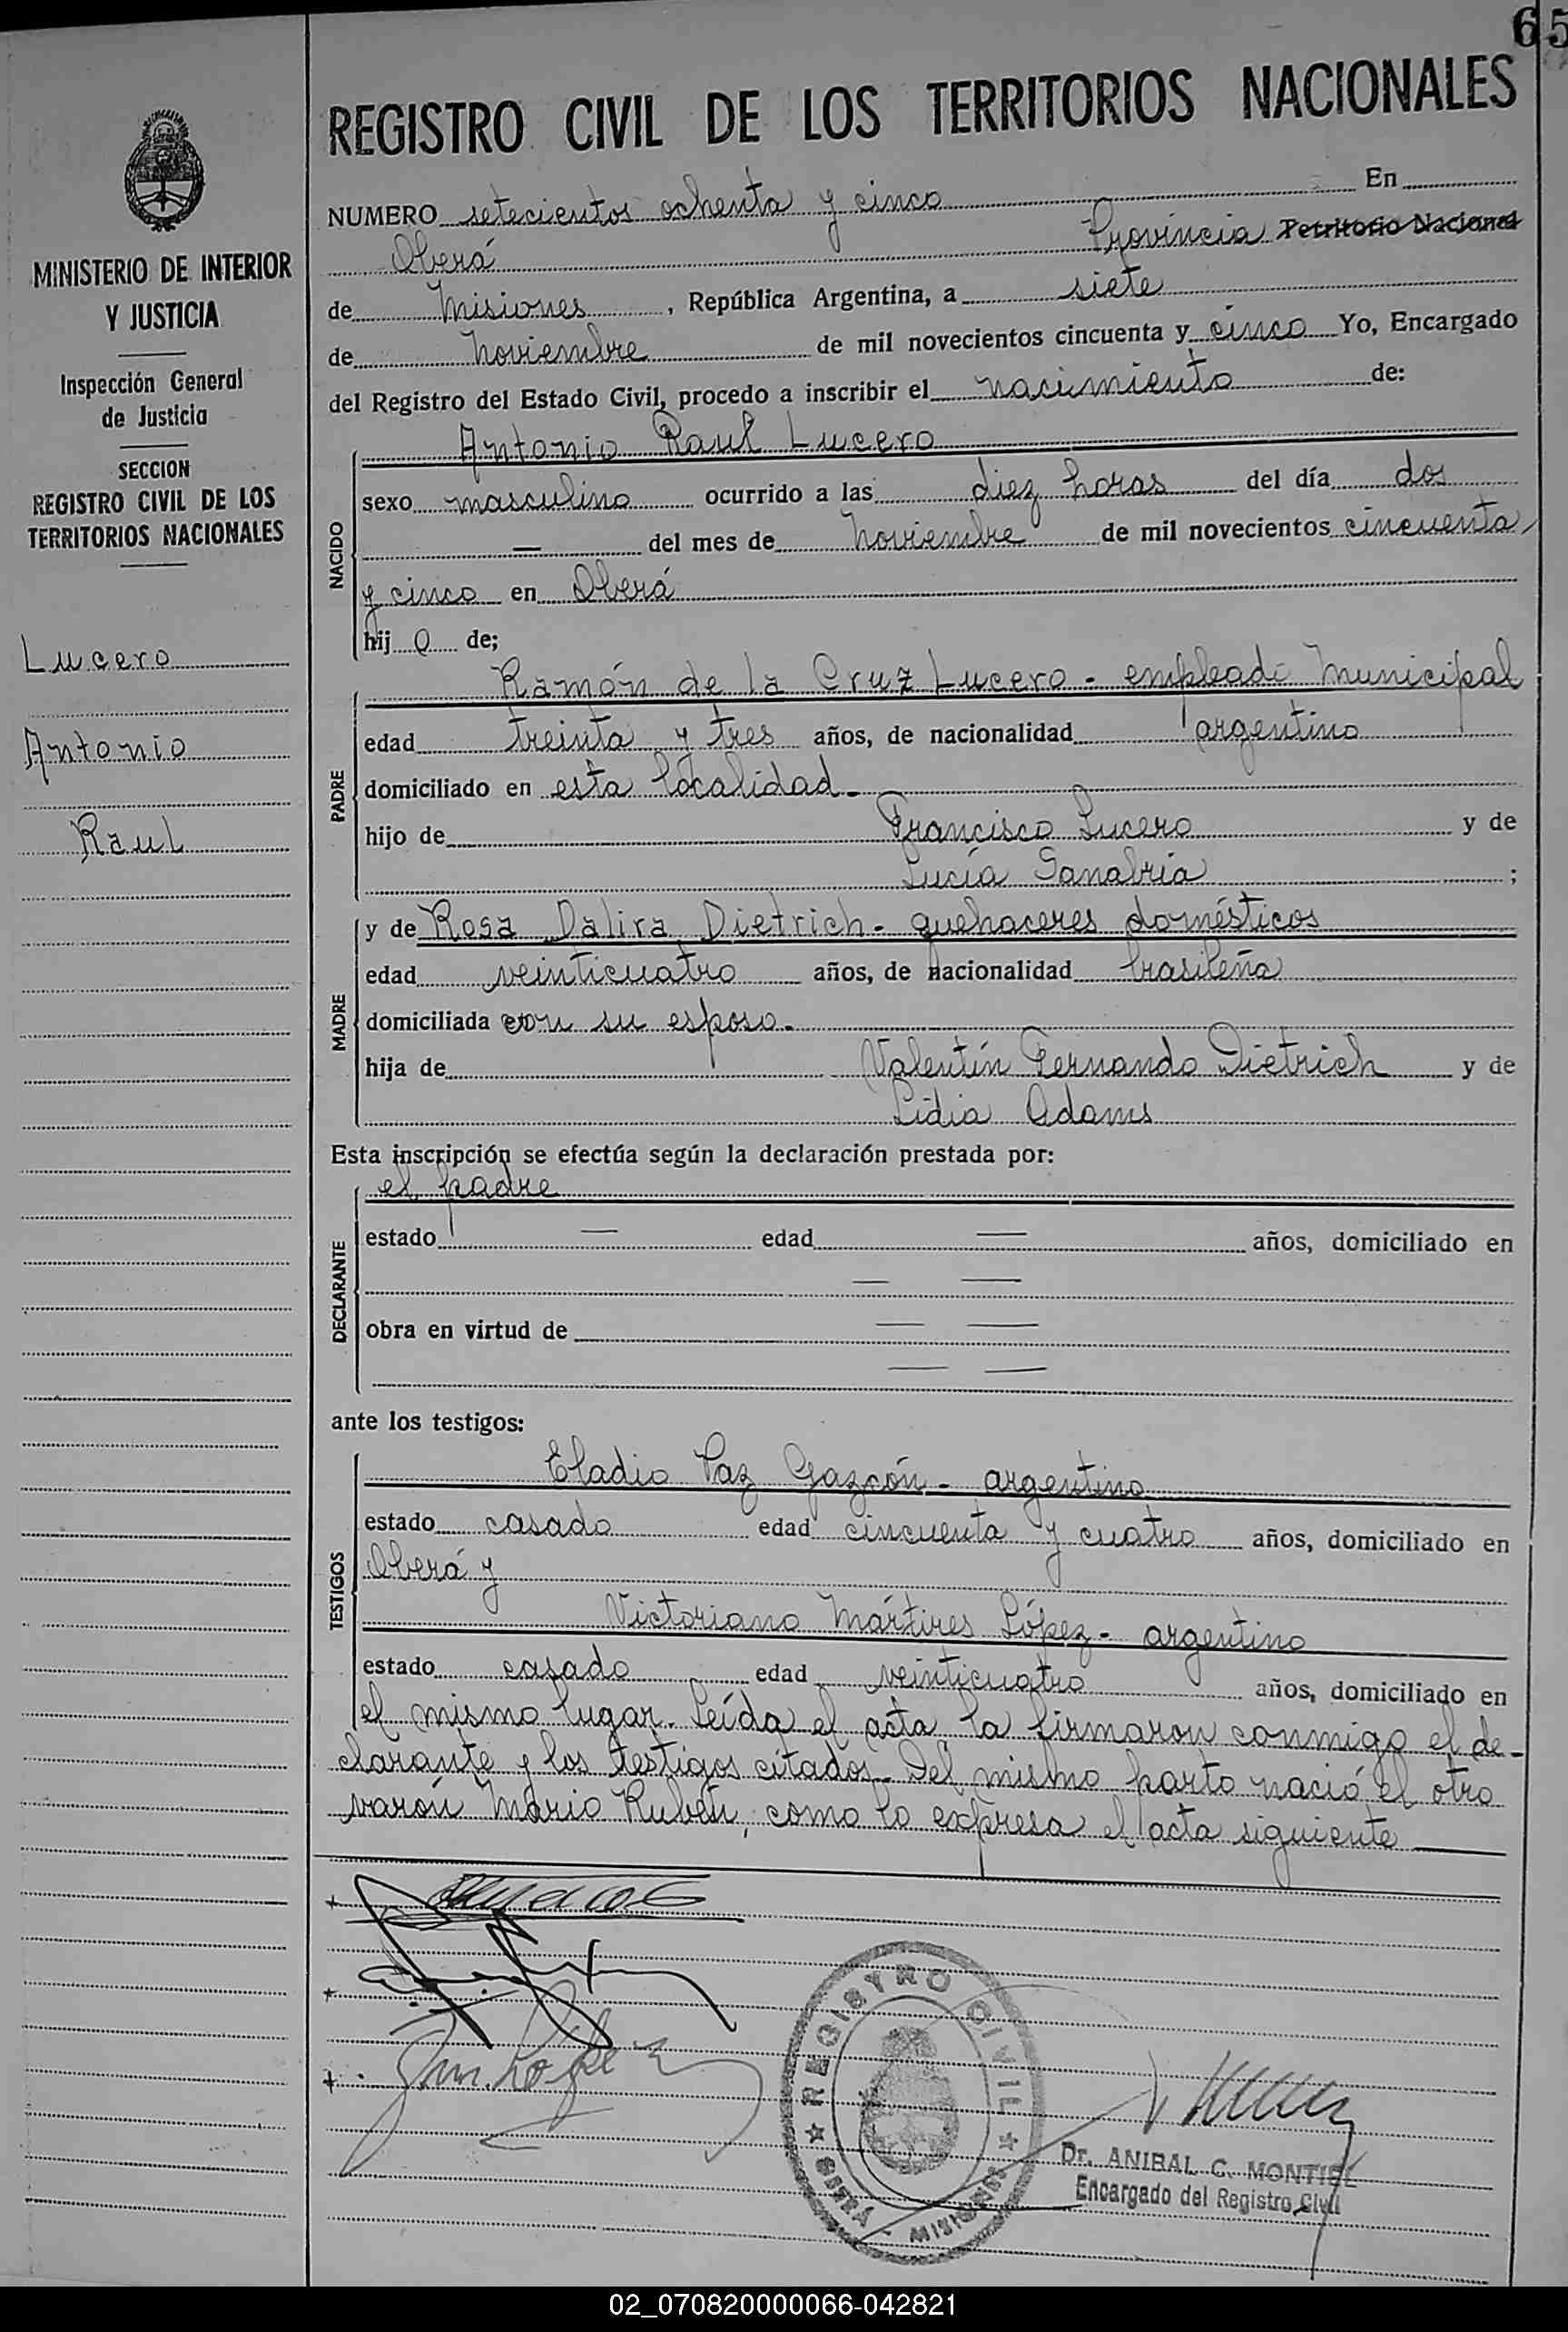 65
REGISTRO CIVIL DE LOS TERRITORIOS NACIONALES
MINISTERIO DE INTERIOR
Y JUSTICIA
Inspección General
de Justicia
SECCION
REGISTRO CIVIL DE LOS
TERRITORIOS NACIONALES
Lucero
Antonio
Raul
NUMERO setecientos ochenta y cinco En
Oberá Provincia Territorio Nacional
de Misiones, República Argentina, a siete
de noviembre de mil novecientos cincuenta y cinco Yo, Encargado
del Registro del Estado Civil, procedo a inscribir el nacimiento de:
NACIDO
Antonio Raul Lucero
sexo masculino ocurrido a las diez horas del día dos
— del mes de noviembre de mil novecientos cincuenta
y cinco en Oberá
hijo de;
PADRE
Ramón de la Cruz Lucero - empleado Municipal
edad treinta y tres años, de nacionalidad argentino
domiciliado en esta localidad.
hijo de Francisco Lucero y de
Lucía Sanabria;
MADRE
y de Rosa Dalira Dietrich - quehaceres domésticos
edad veinticuatro años, de nacionalidad brasileña
domiciliada con su esposo.
hija de Valentín Fernando Dietrich y de
Lidia Adams
Esta inscripción se efectúa según la declaración prestada por:
DECLARANTE
el padre
estado — edad — años, domiciliado en
— —
obra en virtud de — —
— —
ante los testigos:
TESTIGOS
Eladio Paz Gazcón - argentino
estado casado edad cincuenta y cuatro años, domiciliado en
Oberá y
Victoriano Mártires López - argentino
estado casado edad veinticuatro años, domiciliado en
el mismo lugar. Leída el acta la firmaron conmigo el de-
clarante y los testigos citados. Del mismo parto nació el otro
varón Mario Rubén, como lo expresa el acta siguiente
López
REGISTRO CIVIL
OBERÁ - MISIONES
Dr. ANIBAL C. MONTIEL
Encargado del Registro Civil
02_070820000066-042821